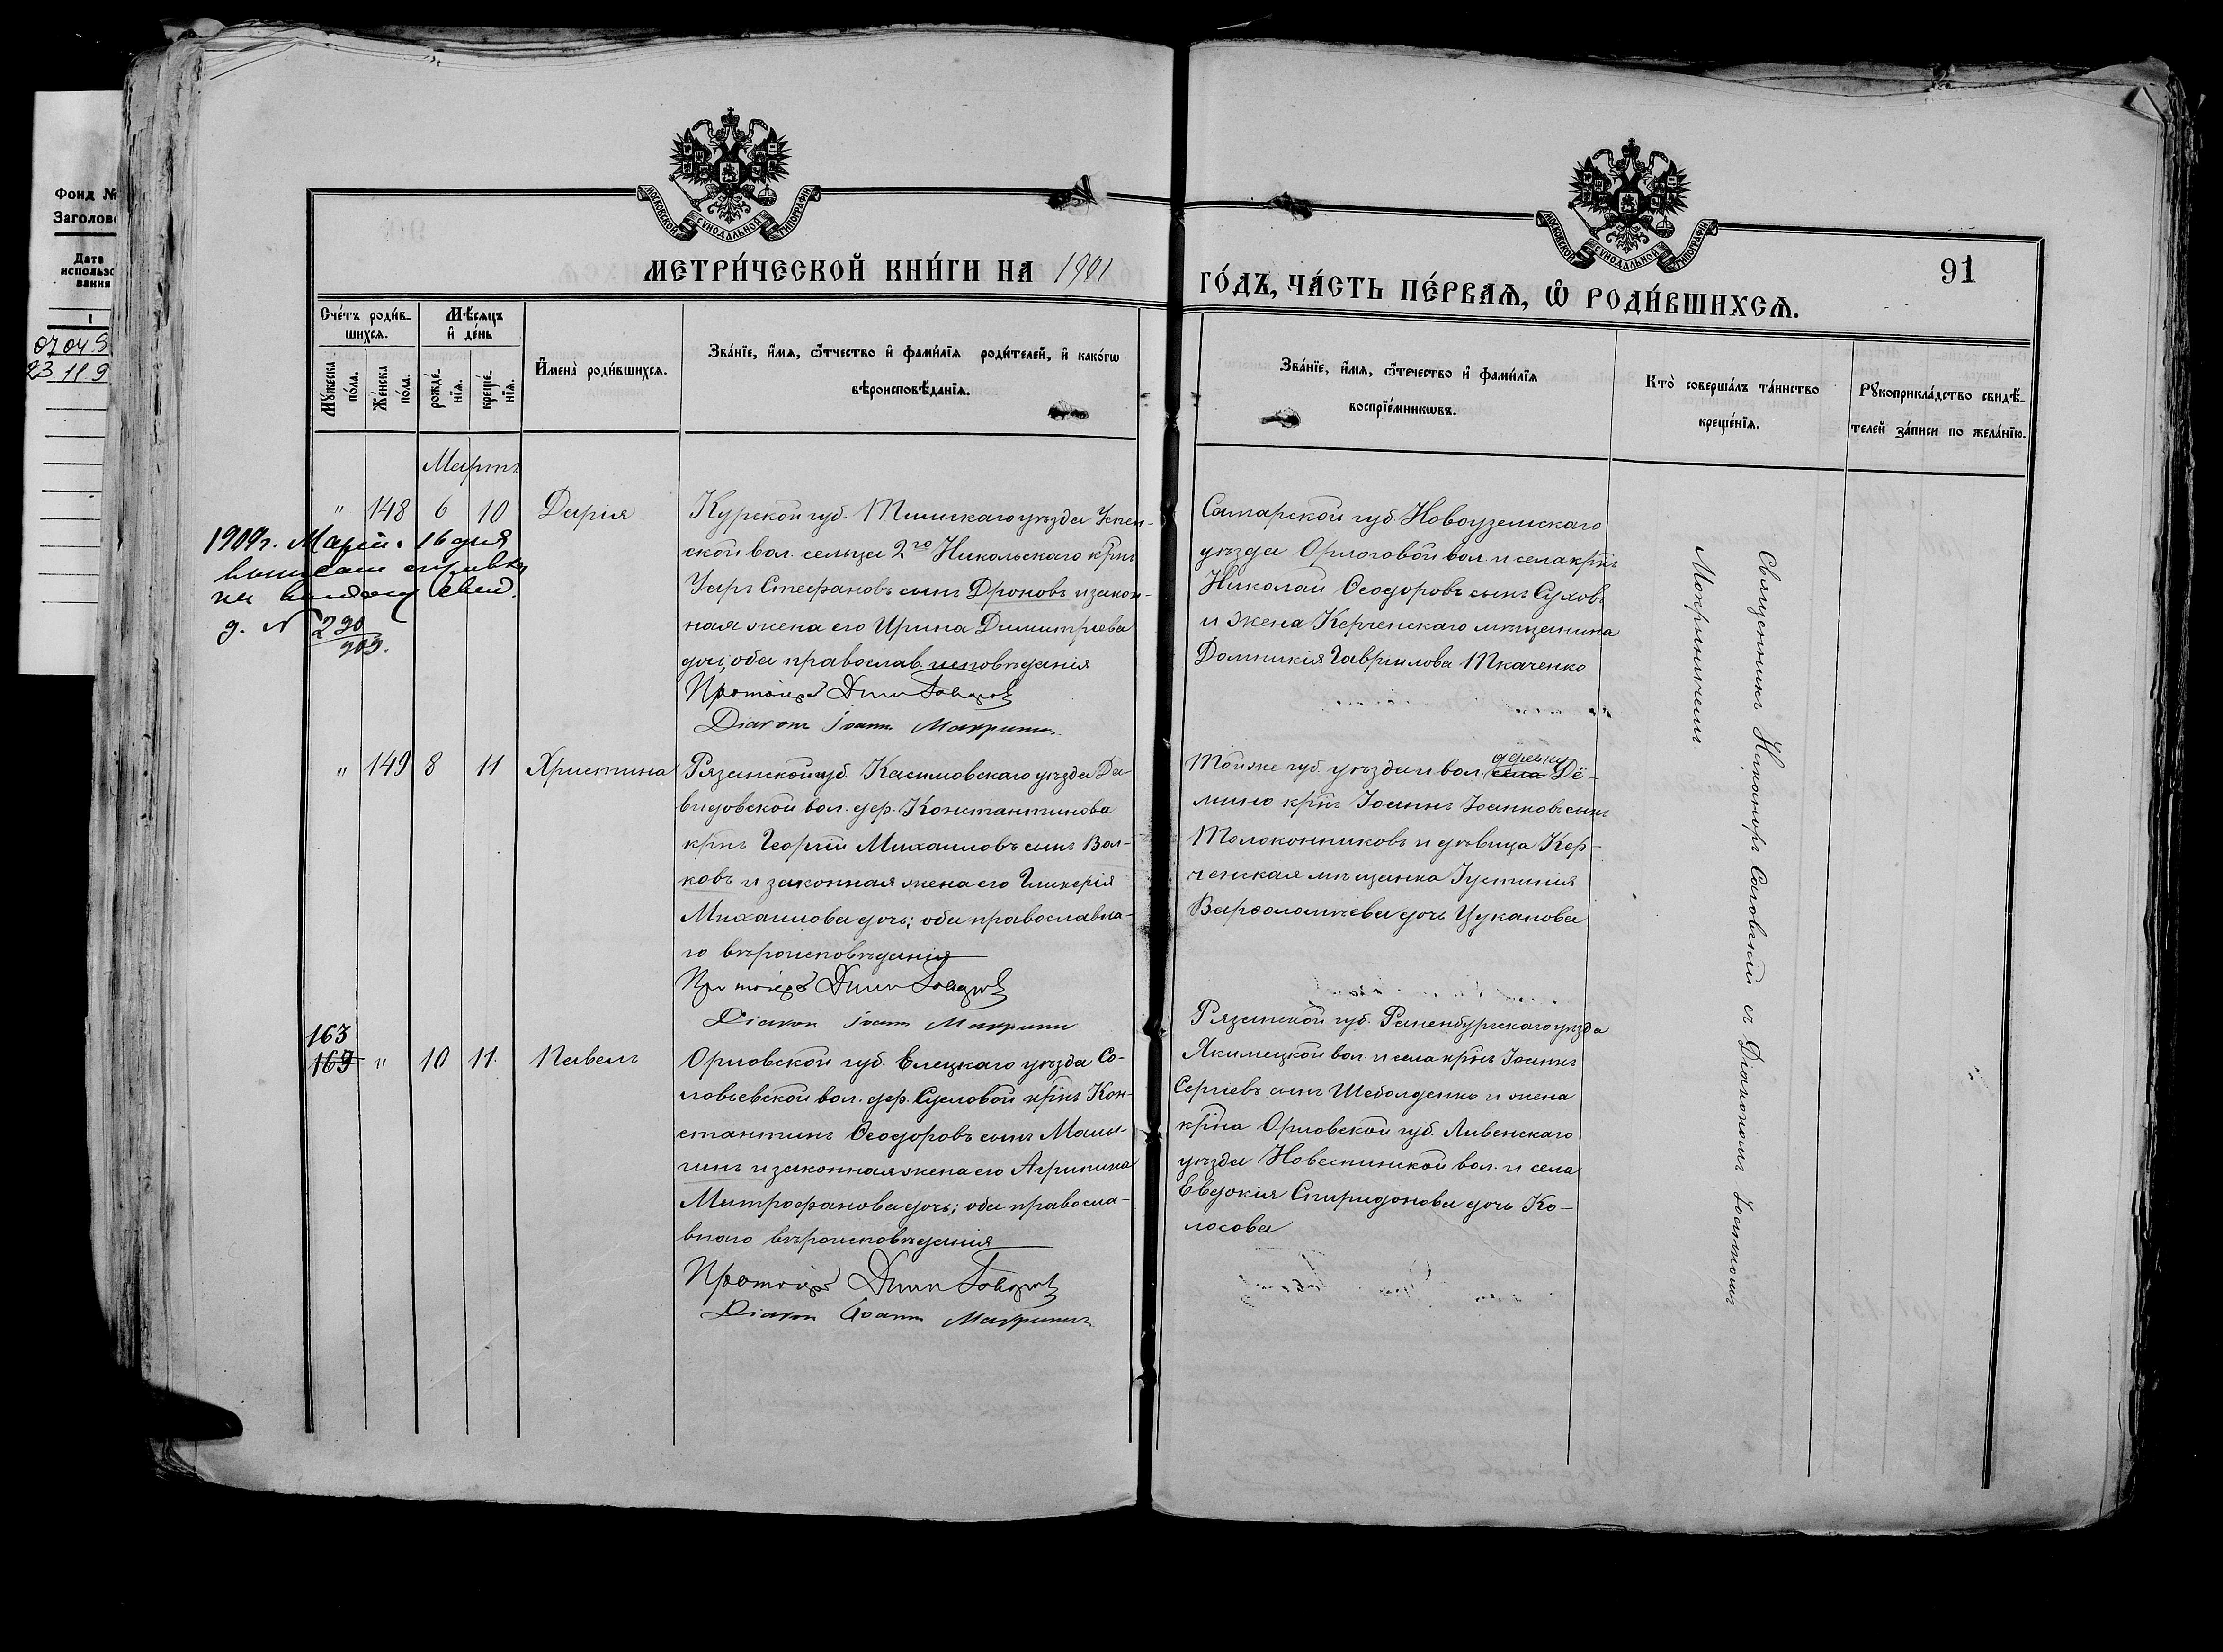 Фонд №
Заголов
Дата
использо
вания
1
07 04 9
23 11 9
МОСКОВСКОЙ СѴНОДАЛЬНОЙ ТИПОГРАФІИ
МОСКОВСКОЙ СѴНОДАЛЬНОЙ ТИПОГРАФІИ
МЕТРИ́ЧЕСКОЙ КНИ́ГИ НА 1901
ГО́ДЪ, ЧА́СТЬ ПЕ́РВАѦ, Ѡ҆ РОДИ́ВШИХСѦ.
91
Сче́тъ роди́в-
шихсѧ.
Мꙋ́жеска
по́ла.
Же́нска
по́ла.
Мѣ́сѧцъ
и҆ де́нь
рожде́-
нїѧ.
креще́-
нїѧ.
И҆мена̀ роди́вшихсѧ.
Зва́нїе, и҆́мѧ, ѻ҆́тчество и҆ фами́лїѧ роди́телей, и҆ како́гѡ
вѣроисповѣ́данїѧ.
Зва́нїе, и҆́мѧ, ѻ҆́течество и҆ фами́лїѧ
воспрїе́мникѡвъ.
Кто̀ соверша́лъ та́инство
креще́нїѧ.
Рꙋкоприкла́дство свидѣ́-
телей за́писи по жела́нїю.
Мартъ
" 148 6 10 Дарія
Курской губ. Тимскаго уѣзда Успен-
ской вол. сельца 2го Никольскаго крнъ
Уаръ Стефановъ сынъ Дроновъ и закон-
ная жена его Ирина Димитріева
дочь, оба православ. исповѣданія
Протоіер
Діаконъ Іоаннъ Макринъ
Самарской губ. Новоузенскаго
уѣзда Орлоговой вол. и села крнъ
Николай Ѳеодоровъ сынъ Суховъ
и жена Керченскаго мѣщанина
Домникія Гаврилова Ткаченко
1909г. 16 дня
справку
на свид.
д. № 290
909.
" 149 8 11 Христина
Рязанской губ. Касимовскаго уѣзда Да-
видовской вол. дер. Константинова
крнъ Георгій Михаиловъ сынъ Вол-
ковъ и законная жена его Гликерія
Михаилова дочь; оба православна-
го вѣроисповѣданія
Протоіер
Діакон Іоанн Макринъ
Той же губ. уѣзда и вол. села деревни Дё-
мино крнъ Іоаннъ Іоанновъ сынъ
Толоконниковъ и дѣвица Кер-
ченская мѣщанка Іустинія
Варѳоломѣева дочь Цуканова
163
169 " 10 11. Павелъ
Орловской губ. Елецкаго уѣзда Со-
ловьевской вол. дер. Сусловой крнъ Кон-
стантинъ Ѳеодоровъ сынъ Малы-
гинъ и законная жена его Агрипина
Митрофанова дочь; оба правосла-
внаго вѣроисповѣданія
Протоіер
Діакон Іоанн Макринъ
Рязанской губ. Раненбургскаго уѣзда
Якимецкой вол. и села крнъ Іоаннъ
Сергіевъ сынъ Шеболденко и жена
крна Орловской губ. Ливенскаго
уѣзда Новоспинской вол. и села
Евдокія Спиридонова дочь Ко-
лосова
Священникъ Никаноръ Саговскій съ Діакономъ Іоанномъ